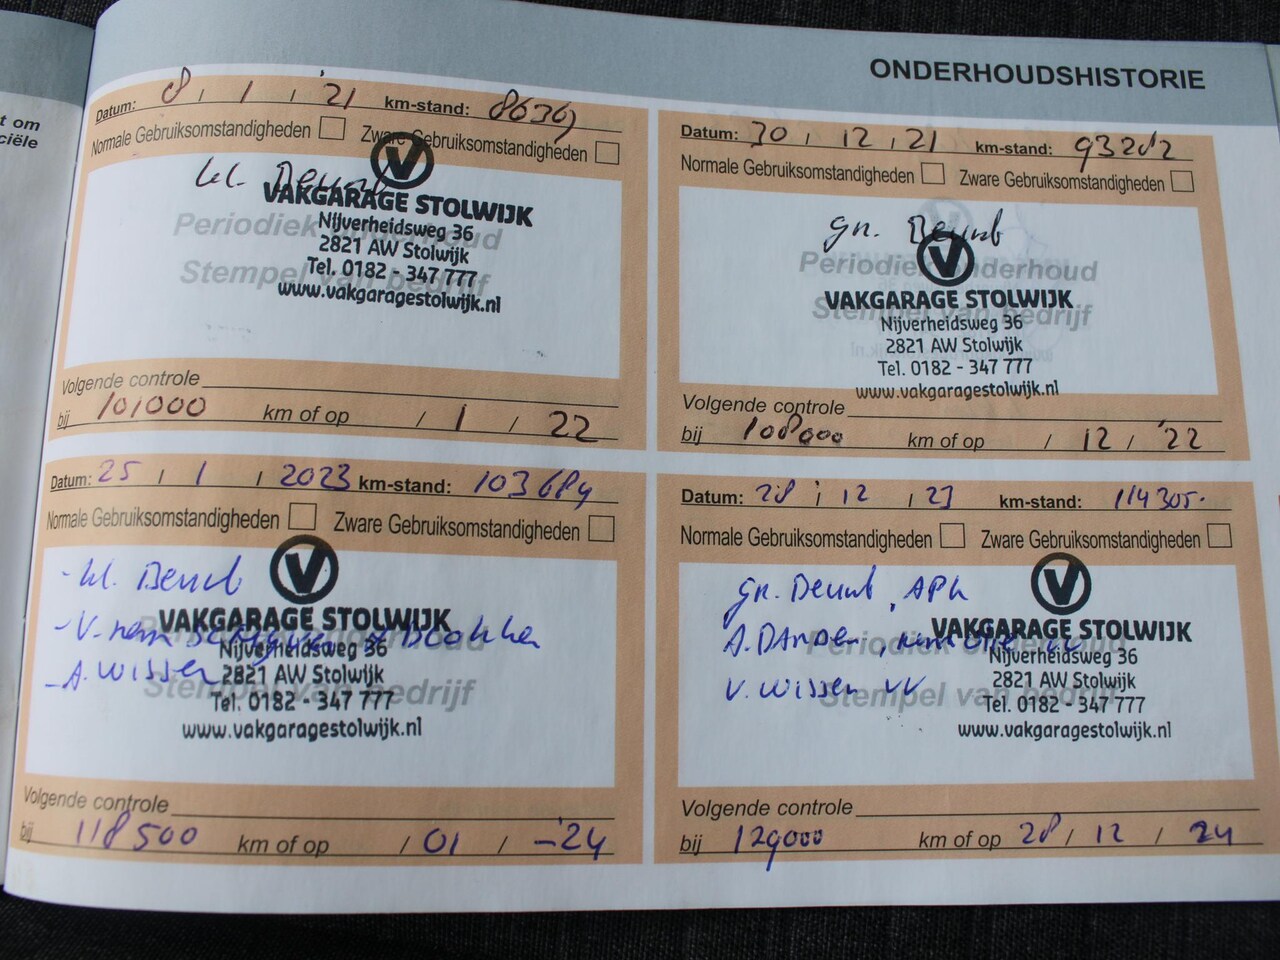 t om
ciële
ONDERHOUDSHISTORIE
Datum: 8 / 1 / '21 km-stand: 86369
Normale Gebruiksomstandigheden Zware Gebruiksomstandigheden
kl. Beurt
VAKGARAGE STOLWIJK
Periodiek onderhoud
Nijverheidsweg 36
2821 AW Stolwijk
Stempel van bedrijf
Tel. 0182 - 347 777
www.vakgaragestolwijk.nl
Volgende controle
bij 101000 km of op / 1 / 22
Datum: 30 / 12 / 21 km-stand: 93282
Normale Gebruiksomstandigheden Zware Gebruiksomstandigheden
gr. Beurt
Periodiek onderhoud
VAKGARAGE STOLWIJK
Stempel van bedrijf
Nijverheidsweg 36
2821 AW Stolwijk
Tel. 0182 - 347 777
www.vakgaragestolwijk.nl
Volgende controle
bij 108000 km of op / 12 / '22
Datum: 25 / 1 / 2023 km-stand: 103684
Normale Gebruiksomstandigheden Zware Gebruiksomstandigheden
- kl. Beurt
VAKGARAGE STOLWIJK
- V. rem schijven + blokken
Periodiek onderhoud
Nijverheidsweg 36
- A. Wisser
2821 AW Stolwijk
Stempel van bedrijf
Tel. 0182 - 347 777
www.vakgaragestolwijk.nl
Volgende controle
bij 118500 km of op / 01 / - '24
Datum: 28 / 12 / 23 km-stand: 114305.
Normale Gebruiksomstandigheden Zware Gebruiksomstandigheden
gr. Beurt, APK
VAKGARAGE STOLWIJK
A. Banden,
Periodiek onderhoud
Nijverheidsweg 36
V. Wissen VV
2821 AW Stolwijk
Stempel van bedrijf
Tel. 0182 - 347 777
www.vakgaragestolwijk.nl
Volgende controle
bij 129000 km of op 28 / 12 / 24